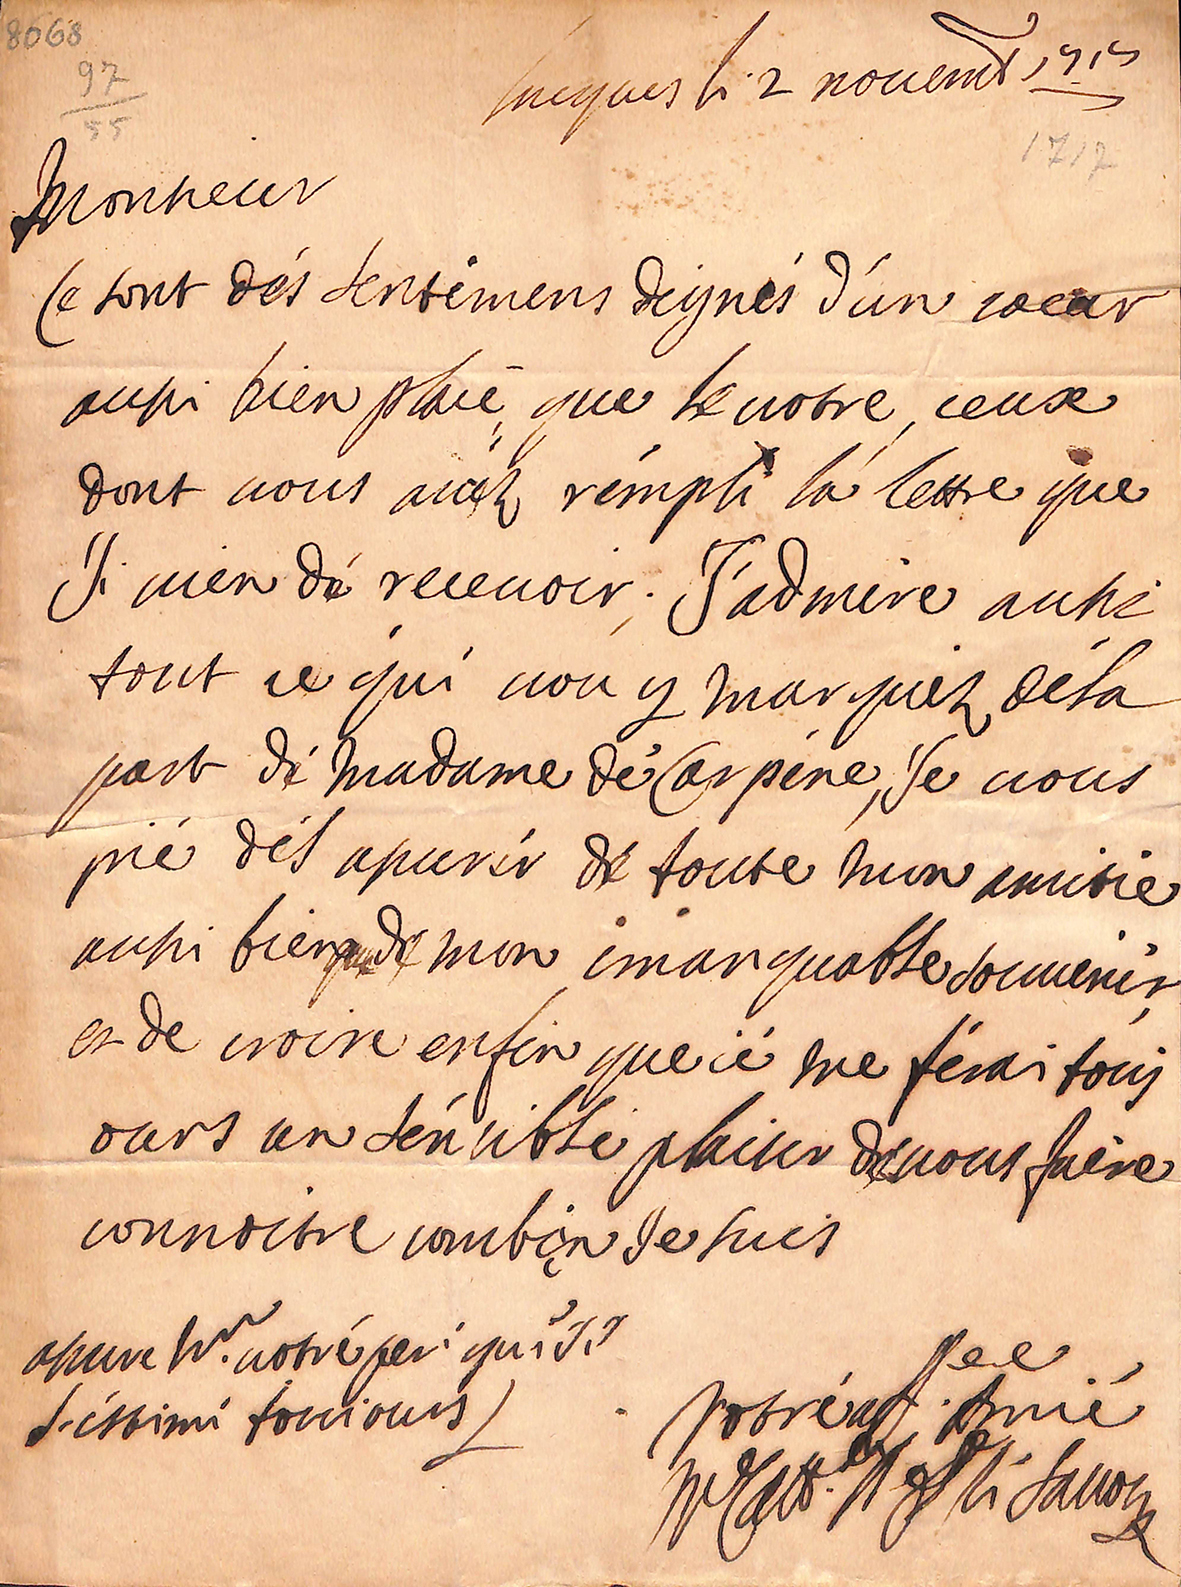 8068
97
55
Lucques le 2 novemb
1717
Monsieur
Ce sont dés sentimens deignés d'un coeur
aussi bien placé, que le votre, ceux
dont vous avéz rémpli la lettre que
Je vien dé recevoir; J'admire aussi
tout ce qui vou y marquéz déla
part dé Madame dé Carpéne, Je vous
prié dél asurér dé toute mon amitié
aussi bien que dé mon imanquable souvenir,
et de croire enfin que ié me férai touj
ours un sénsible plaisir dé vous faire
connoitre combien Je suis
asure Mr. votré peré qué
l'éstimé toujours
Votré aff. Amié